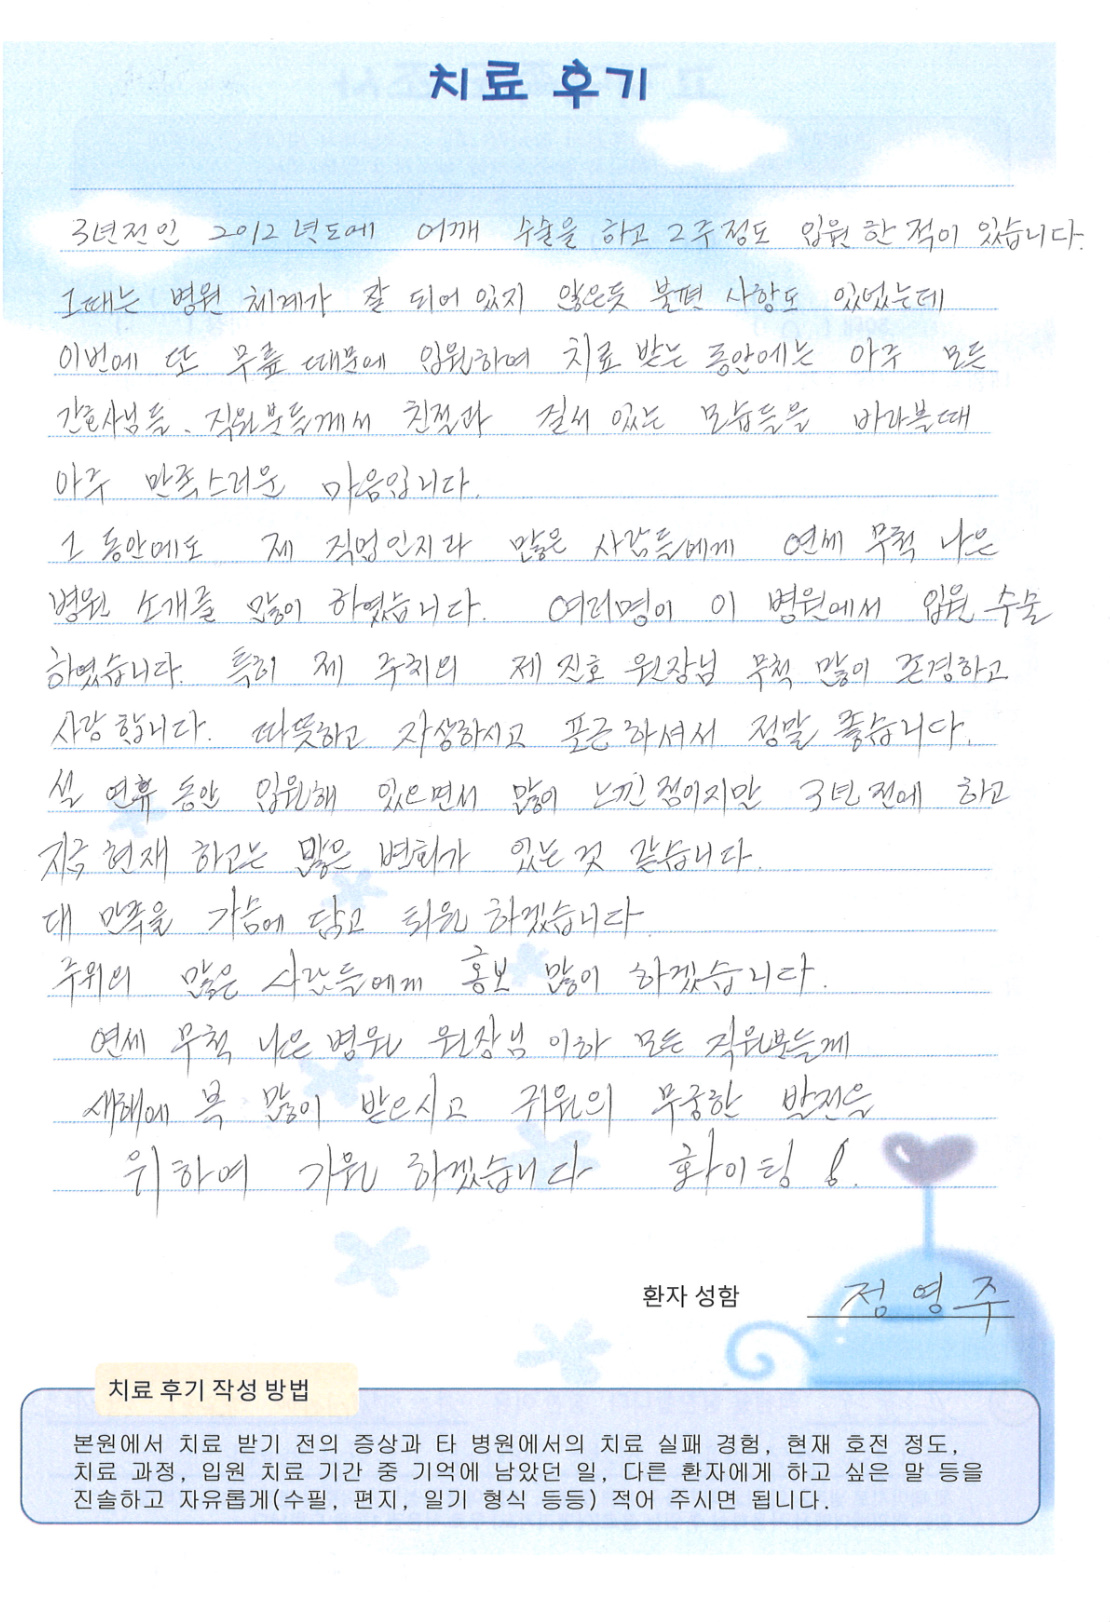 치료 후기
3년전인 2012년도에 어깨 수술을 하고 2주정도 입원 한 적이 있습니다.
그때는 병원 체계가 잘 되어 있지 않은듯 불편 사항도 있었는데
이번에 또 무릎 때문에 입원하여 치료 받는 동안에는 아주 모든
간호사님들, 직원분들께서 친절과 질서 있는 모습들을 바라볼때
아주 만족스러운 마음입니다.
그 동안에도 제 직업인지라 많은 사람들에게 연세 무척 나은
병원 소개를 많이 하였습니다. 여러명이 이 병원에서 입원 수술
하였습니다. 특히 제 주치의 제 진호 원장님 무척 많이 존경하고
사랑 합니다. 따뜻하고 자상하시고 포근하셔서 정말 좋습니다.
설 연휴 동안 입원해 있으면서 많이 느낀 점이지만 3년 전에 하고
지금 현재 하고는 많은 변화가 있는 것 같습니다.
대 만족을 가슴에 담고 퇴원 하겠습니다.
주위의 많은 사람들에게 홍보 많이 하겠습니다.
연세 무척 나은 병원 원장님 이하 모든 직원분들께
새해에 복 많이 받으시고 귀원의 무궁한 발전을
위하여 기원 하겠습니다 화이팅!
환자 성함 정영주
치료 후기 작성 방법
본원에서 치료 받기 전의 증상과 타 병원에서의 치료 실패 경험, 현재 호전 정도,
치료 과정, 입원 치료 기간 중 기억에 남았던 일, 다른 환자에게 하고 싶은 말 등을
진솔하고 자유롭게(수필, 편지, 일기 형식 등등) 적어 주시면 됩니다.